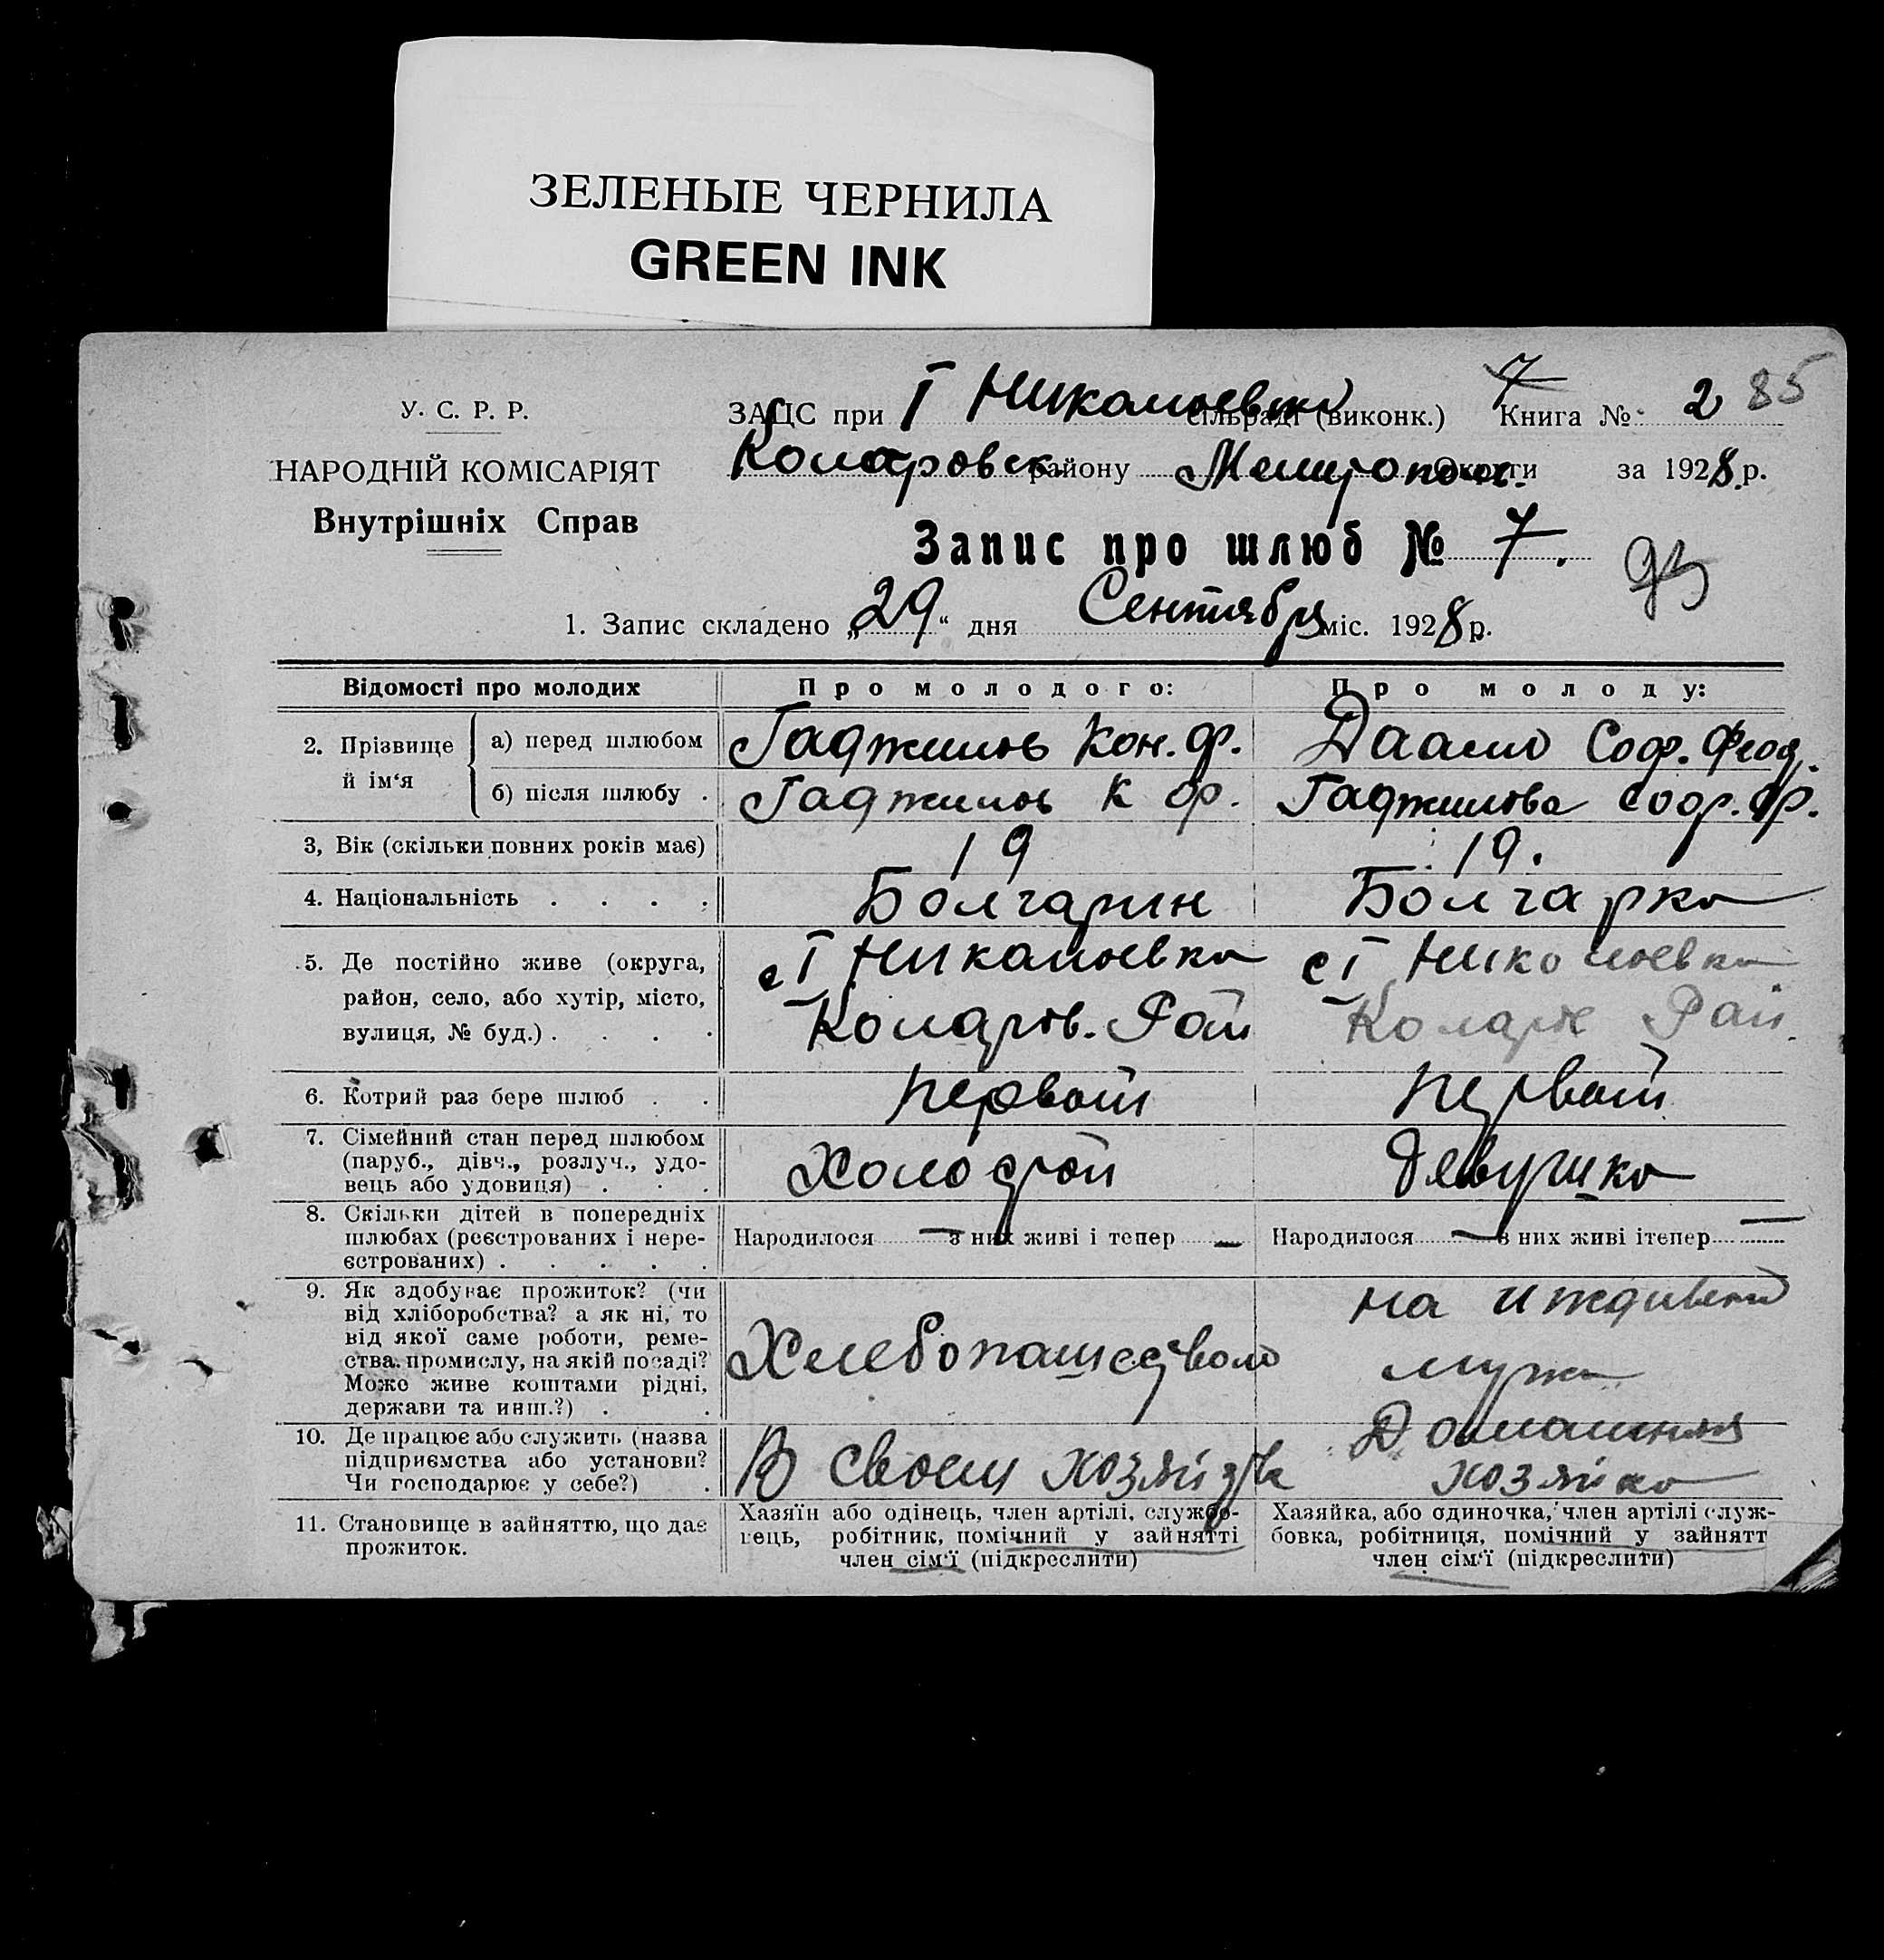 ЗЕЛЕНЫЕ ЧЕРНИЛА
GREEN INK
85
У. С. Р. Р.
НАРОДНІЙ КОМІСАРІЯТ
Внутрішніх Справ
ЗАЦС при I Николаевка сільраді (виконк.) 7 Книга № 2
Коларовск. району Мелитопол. Округи за 1928 р.
Запис про шлюб № 7.
1. Запис складено „29“ дня Сентября міс. 1928 р.
Відомості про молодих
Про молодого:
Про молоду:
2. Прізвище й ім‘я
а) перед шлюбом
Гаджилов Кон. Ф.
Соф. Феод.
б) після шлюбу .
Гаджилов К Ф.
Гаджилова Соф. Ф.
3, Вік (скільки повних років має)
19
19.
4. Національність . . . .
Болгарин
Болгарка
5. Де постійно живе (округа,
район, село, або хутір, місто,
вулиця, № буд.) . . . .
с I Николаевка
Коларов. Рай
с I Николаевка
Коларов Рай.
6. Котрий раз бере шлюб . .
первый
первый
7. Сімейний стан перед шлюбом
(паруб., дівч., розлуч., удо-
вець або удовиця) . . .
Холостой
Девушка
8. Скільки дітей в попередніх
шлюбах (реєстрованих і нере-
єстрованих) . . . . .
Народилося — з них живі і тепер —
Народилося — з них живі ітепер —
9. Як здобуває прожиток? (чи
від хліборобства? а як ні, то
від якої саме роботи, реме-
ства, промислу, на якій посаді?
Може живе коштами рідні,
держави та инш.?) . .
Хлебопашеством
на иждивении
мужа
10. Де працює або служить (назва
підприємства або установи?
Чи господарює у себе?) .
В своем хозяйстве
Домашняя
хозяйка
11. Становище в зайняттю, що дає
прожиток.
Хазяїн або одінець, член артілі, службо-
вець, робітник, помічний у зайнятті
член сім‘ї (підкреслити)
Хазяйка, або одиночка, член артілі служ-
бовка, робітниця, помічний у зайнятт
член сім‘ї (підкреслити)